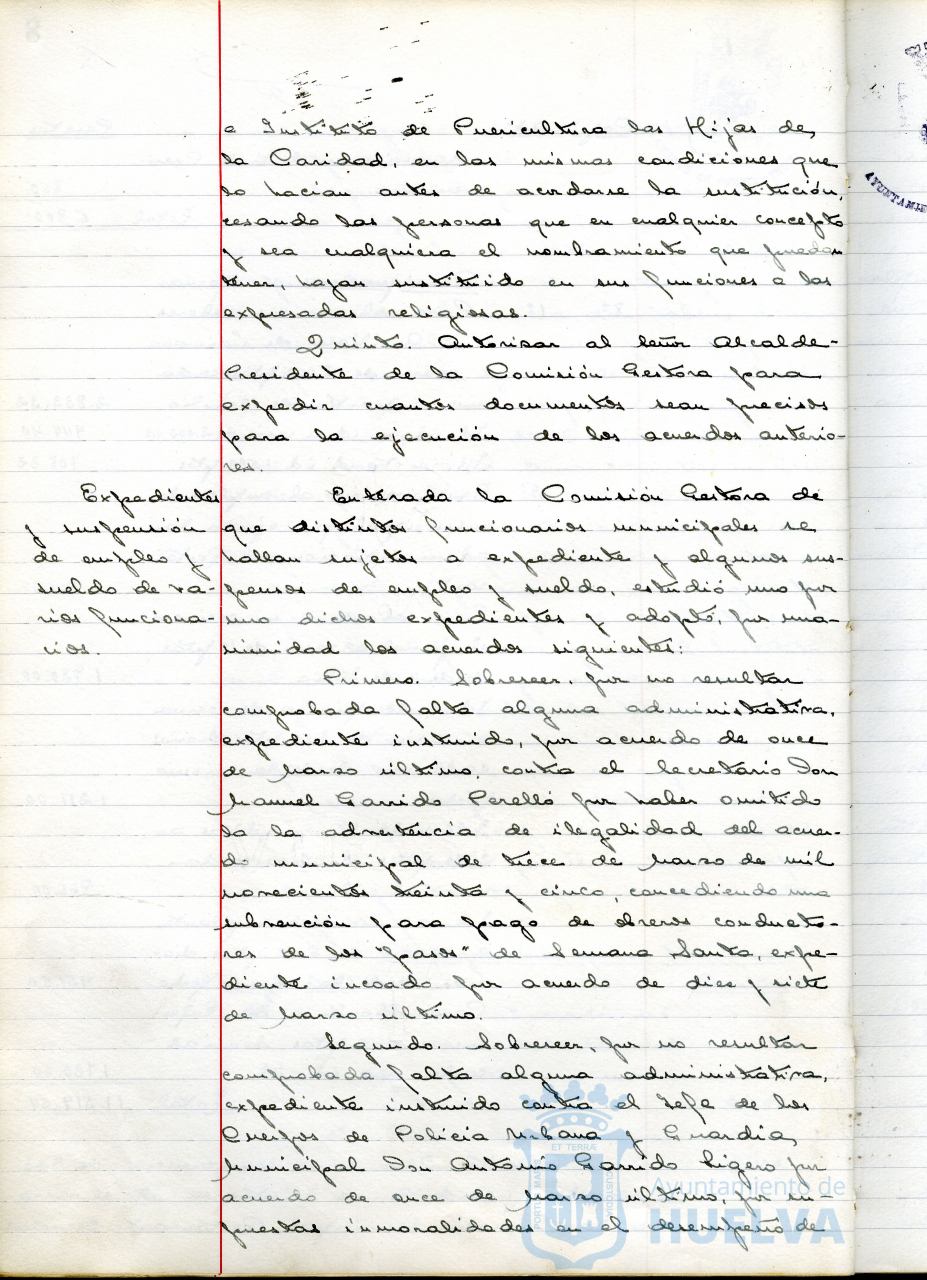 e Instituto de Puericultura las Hijas de
la Caridad, en las mismas condiciones que
lo hacian antes de acordarse la sustitución,
cesando las personas que en cualquier concepto
y sea cualquiera el nombramiento que puedan
tener, hayan sustituido en sus funciones a las
expresadas religiosas.
Quinto. Autorizar al Señor Alcalde-
Presidente de la Comisión Gestora para
expedir cuantos documentos sean precisos
para la ejecución de los acuerdos anterio-
res.
Expedientes
y suspensión
de empleo y
sueldo de va-
rios funciona-
rios.
Enterada la Comisión Gestora de
que distintos funcionarios municipales se
hallan sujetos a expediente y algunos sus-
pensos de empleo y sueldo, estudió uno por
uno dichos expedientes y adoptó, por una-
nimidad los acuerdos siguientes:
Primero. Sobreseer, por no resultar
comprobada falta alguna administrativa,
expediente instruido, por acuerdo de once
de Marzo último, contra el Secretario Don
Manuel Garrido Perelló por haber omitido
la la advertencia de ilegalidad del acuer-
do municipal de trece de Marzo de mil
novecientos treinta y cinco, concediendo una
subvención para pago de obreros conducto-
res de los "pasos" de Semana Santa, expe-
diente incoado por acuerdo de diez y siete
de Marzo último.
Segundo. Sobreseer, por no resultar
comprobada falta alguna administrativa,
expediente instruido contra el Jefe de los
Cuerpos de Policia Urbana y Guardia
Municipal Don Antonio Garrido Ligero por
acuerdo de once de Marzo último, por su-
puestas inmoralidades en el desempeño de
Ayuntamiento de
HUELVA